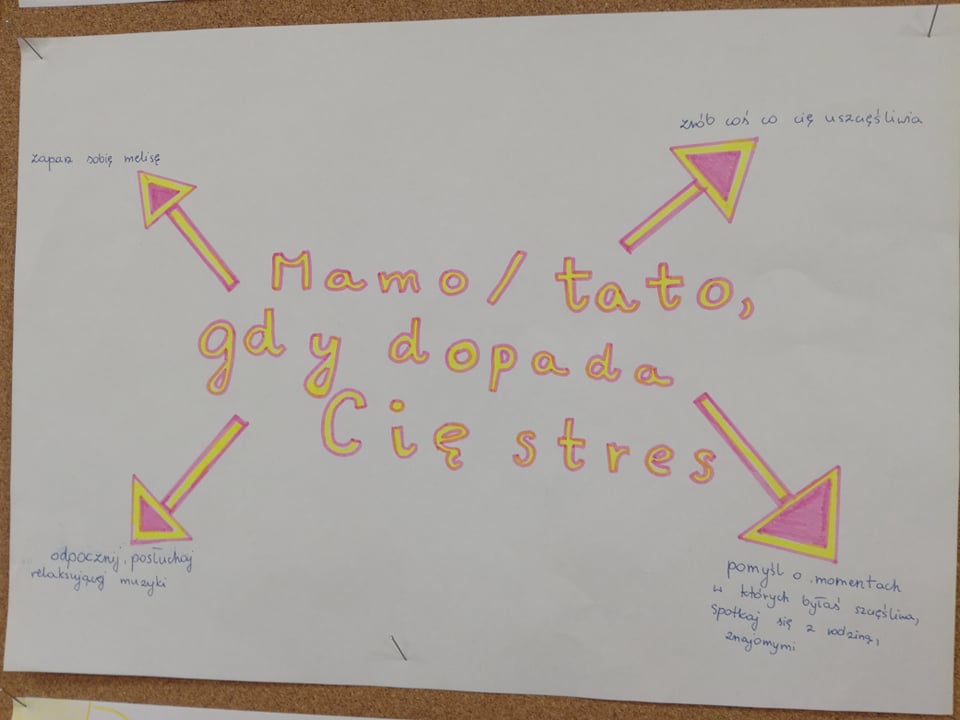 zrób coś co cię uszczęśliwia
zaparz sobię melisę
Mamo / tato,
gdy dopada
Cię stres
odpocznij, posłuchaj
relaksującej muzyki
pomyśl o momentach
w których byłaś szczęśliwa,
spotkaj się z rodziną,
znajomymi